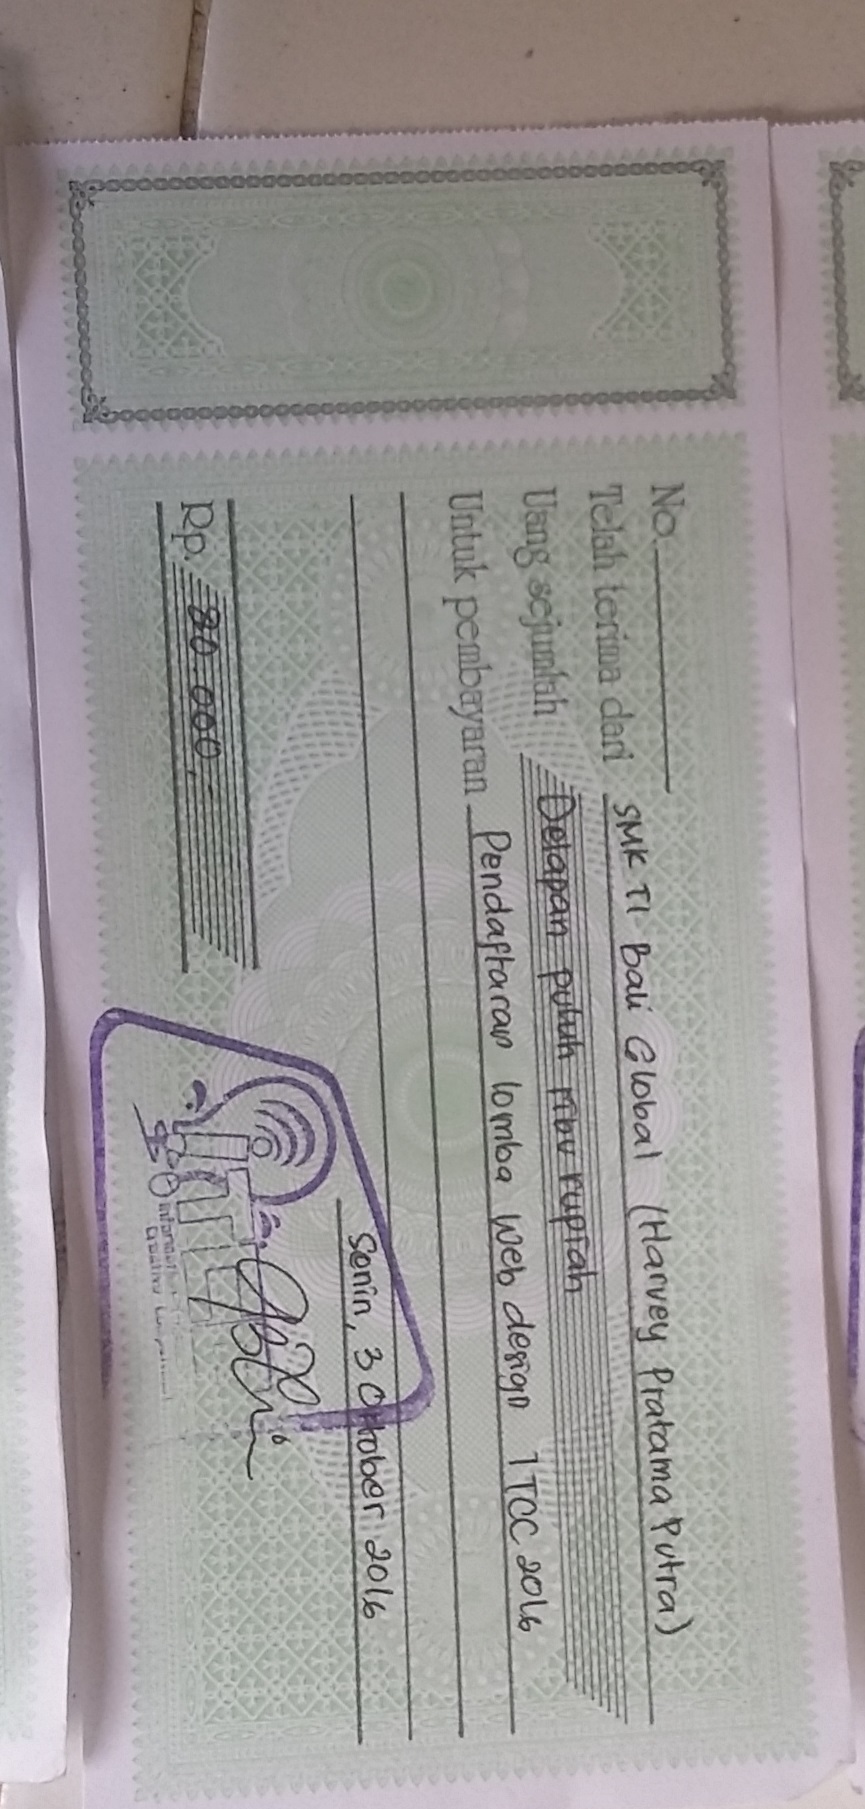 No.
Telah terima dari SMK TI Bali Global (Harvey Pratama Putra)
Uang sejumlah Delapan puluh ribu rupiah
Untuk pembayaran Pendaftaran lomba web design ITCC 2016
Senin, 3 Oktober 2016
Rp. 80.000,-